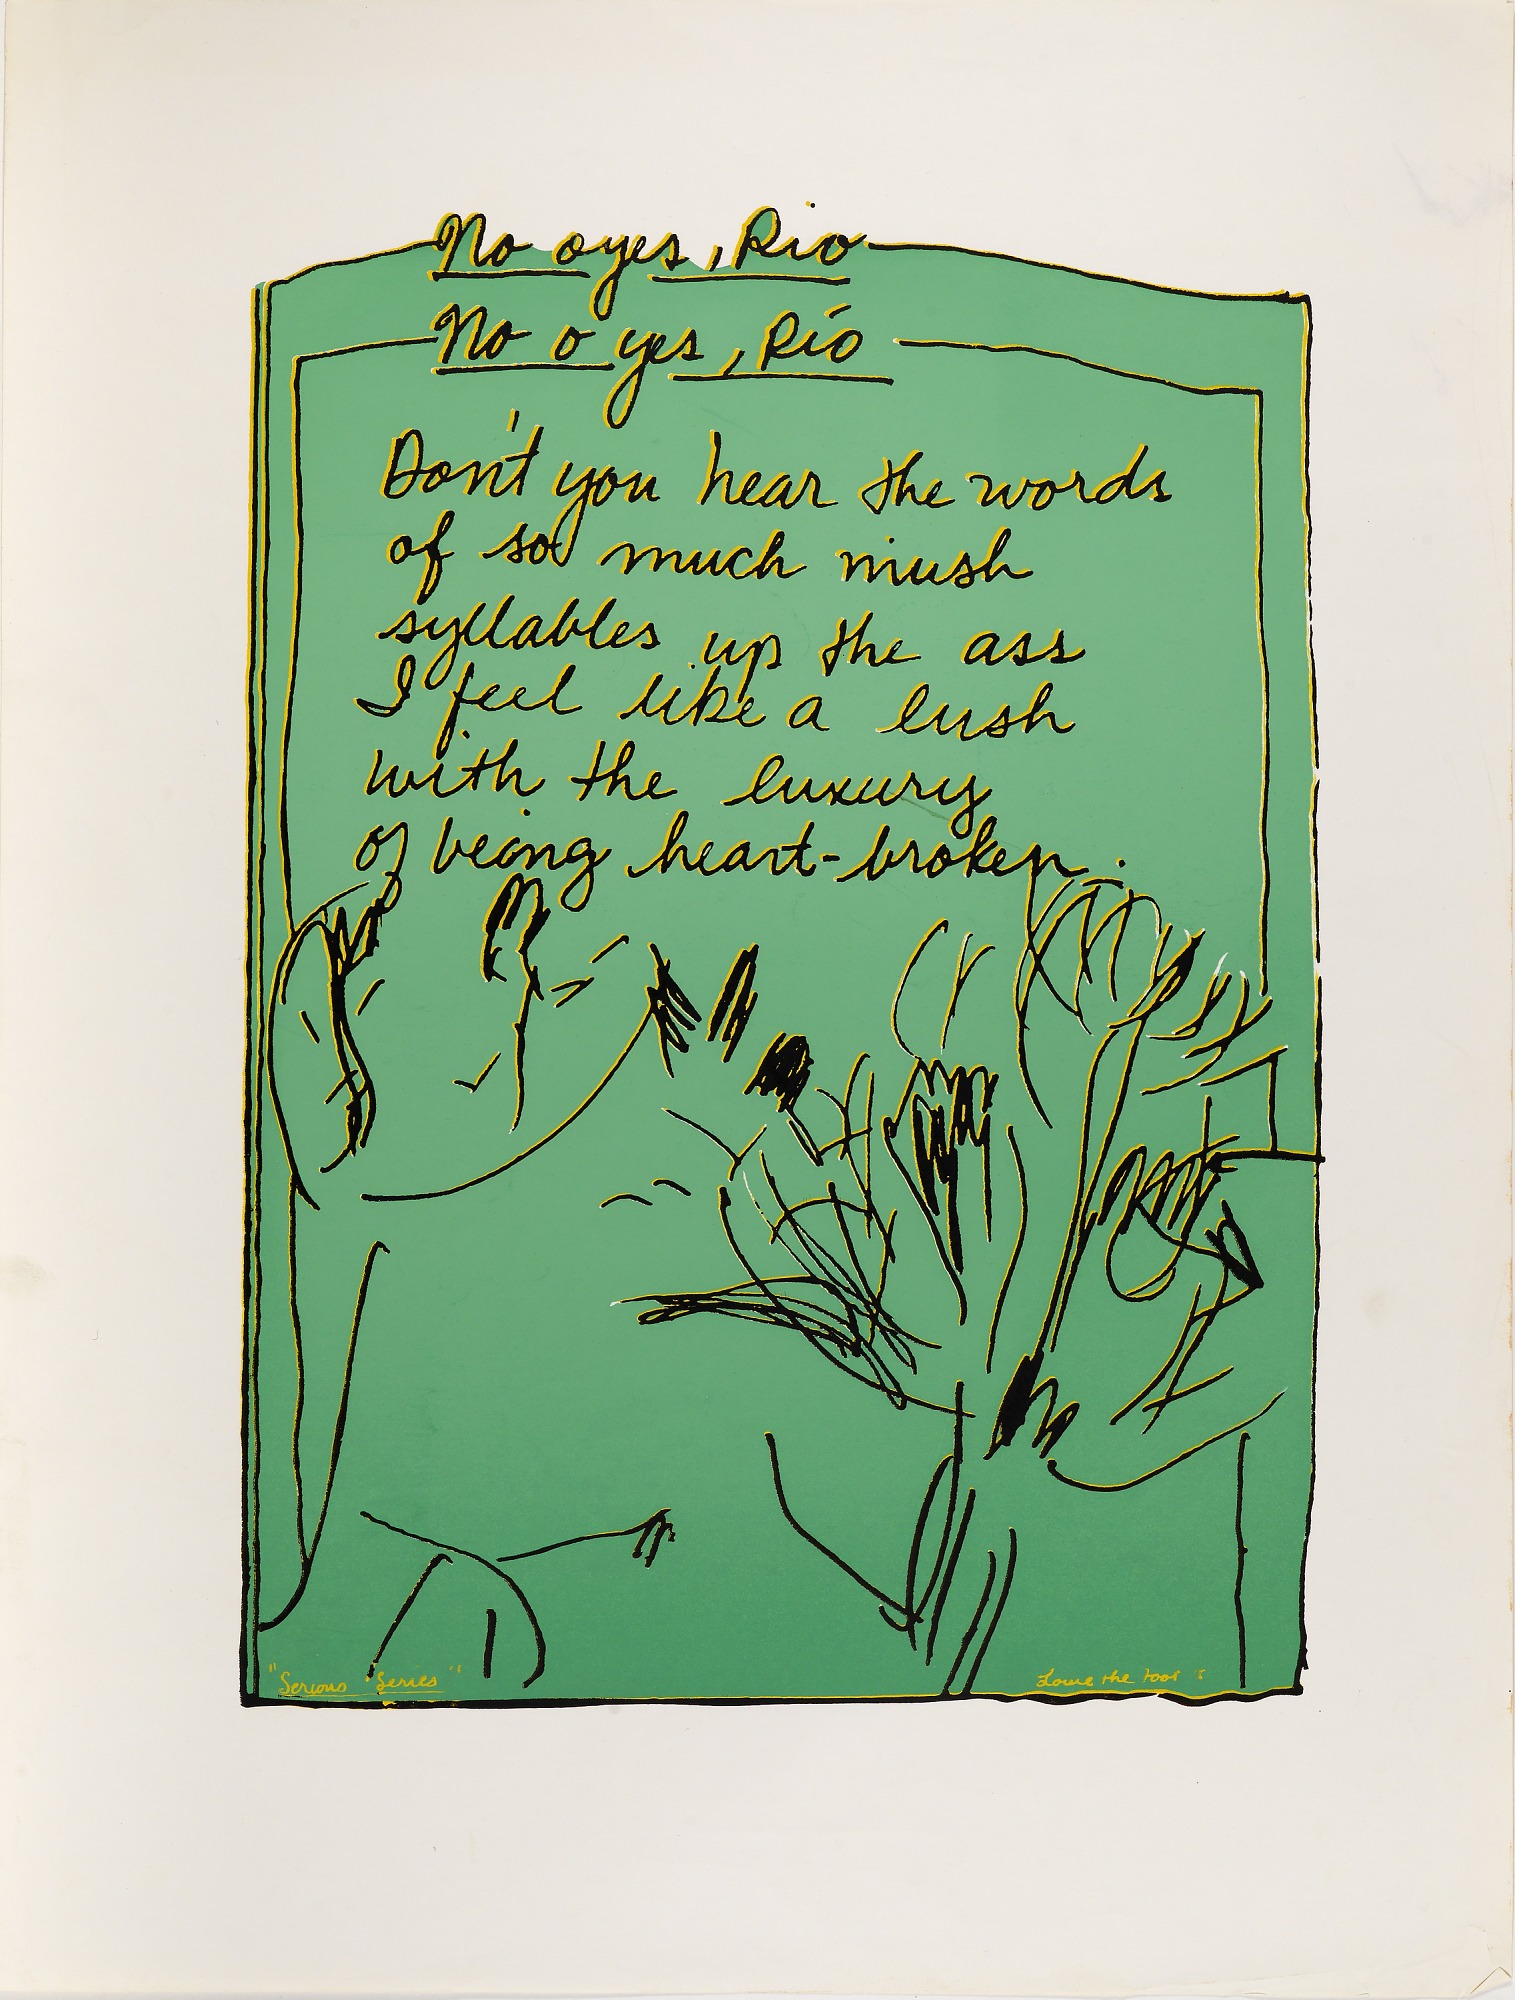 No oyes, Rio
No o yes, Río
Don't you hear the words
of so much mush
syllables up the ass
I feel like a lush
with the luxury
of being heart-broken.
"Serious Series"
Louie the Foot